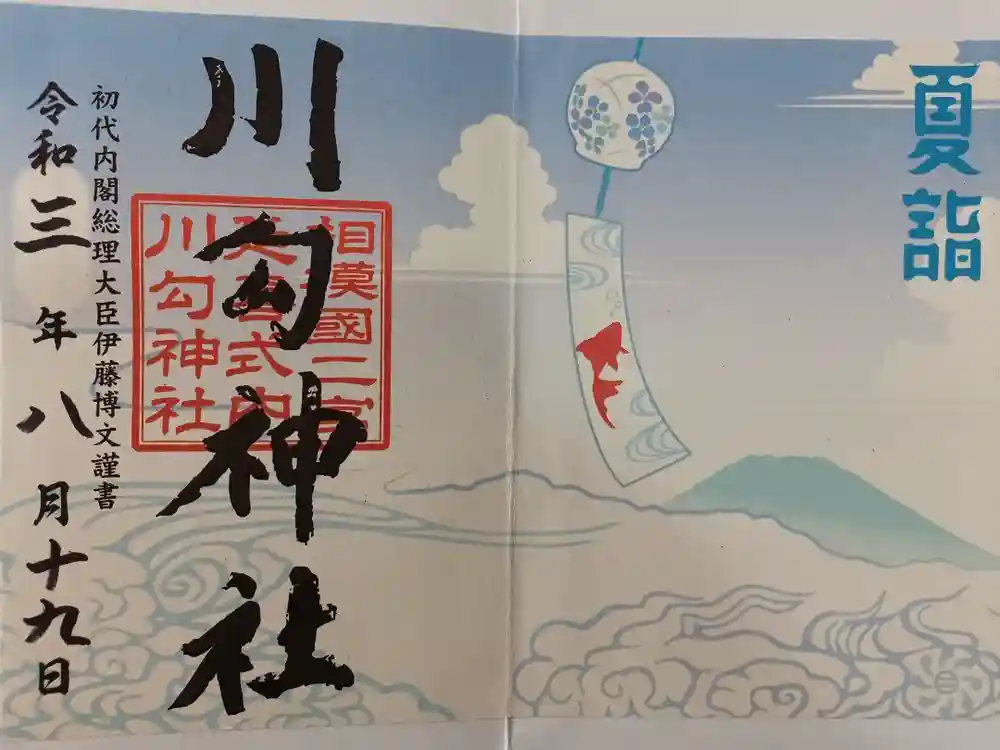 夏詣
相模國二宮
延喜式内
川勾神社
川勾神社
初代内閣総理大臣伊藤博文謹書
令和三年八月十九日